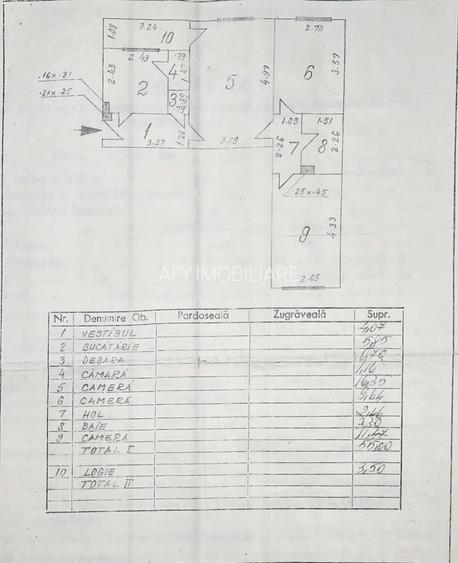 3.24
2.70
1.08
10
2.43
.79
4
1.47
.16×.31
2.43
2
5
4.97
6
3.57
.21×.25
3
.79
1
3.27
1.26
3.29
1.09
1.51
2.26
7
8
2.26
25×.45
9
4.33
2.65
AFY IMOBILIARE
Nr. Denumire Ob. Pardoseală Zugrăveală Supr.
1 VESTIBUL 4,07
2 BUCĂTĂRIE 5,85
3 DEBARA
4 CĂMARĂ 1,16
5 CAMERĂ 16,35
6 CAMERĂ 9,64
7 HOL 2,46
8 BAIE 3,30
9 CAMERĂ 11,47
TOTAL I 55,00
10 LOGIE 3,50
TOTAL II